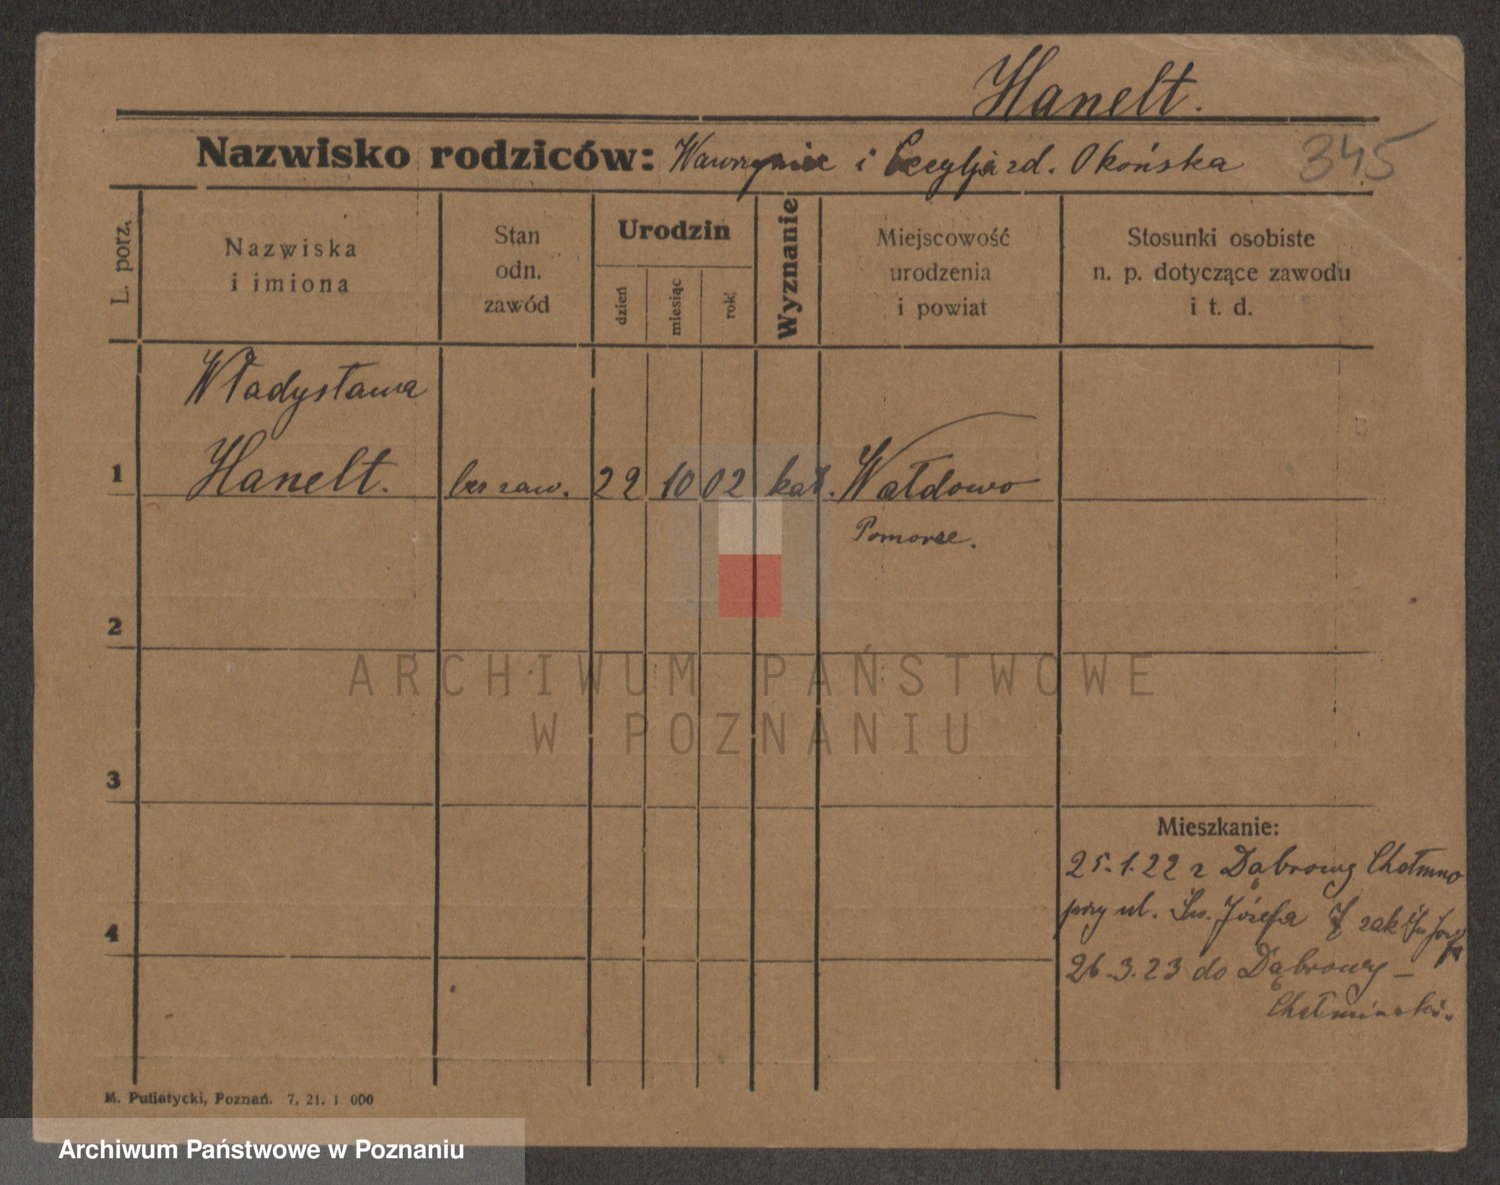 Hanelt.
Nazwisko rodziców: Wawrzyniec i Cecylja zd. Okońska 345
L. porz.
Nazwiska
i imiona
Stan
odn.
zawód
Urodzin
dzień
miesiąc
rok
Wyznanie
Miejscowość
urodzenia
i powiat
Stosunki osobiste
n. p. dotyczące zawodu
i t. d.
Władysława
1 Hanelt. bez zaw. 22 10 02 kat. Wałdowo
Pomorze.
2
ARCHIWUM PAŃSTWOWE
W POZNANIU
3
Mieszkanie:
25.1.22 z Dąbrowy Chełmno
przy ul. Św. Józefa 7 zakł. Św. Józefa
4
26.3.23 do Dąbrowy -
Chełmińskiej.
M. Putiatycki, Poznań. 7, 21. 1 000
Archiwum Państwowe w Poznaniu